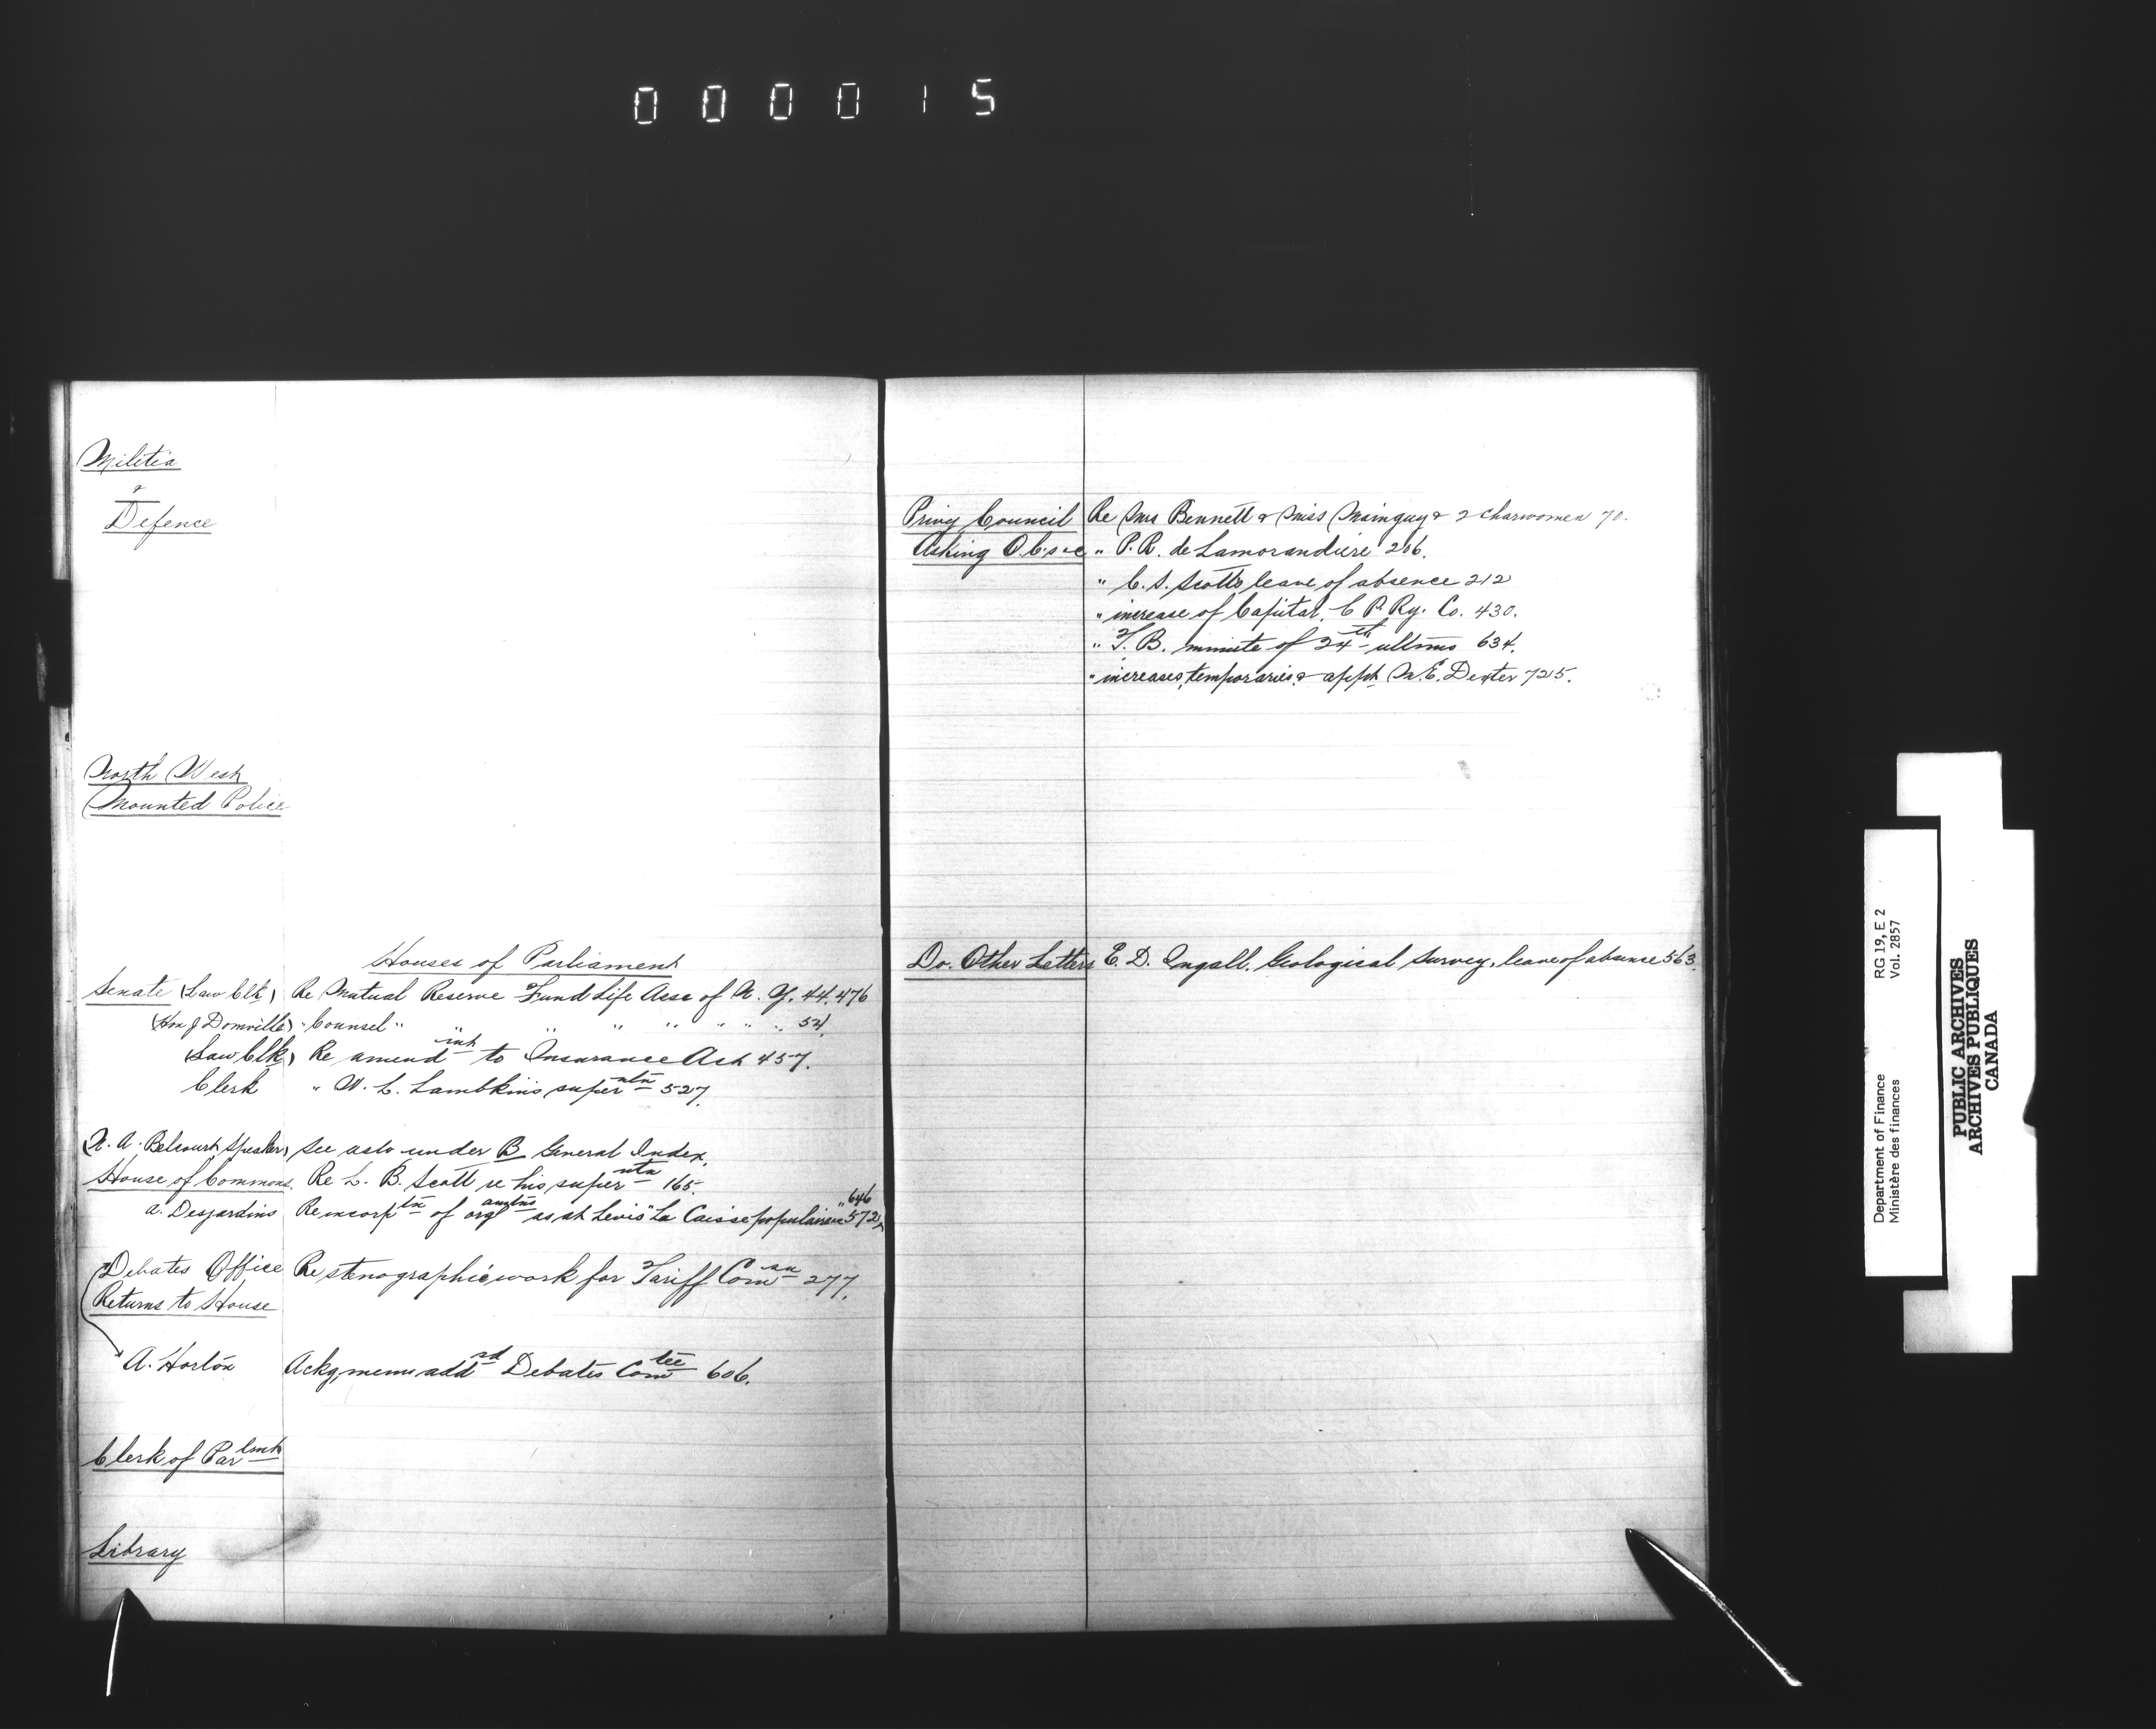 000015
Militia
&
Defence
North West
Mounted Police
Houses of Parliament
Senate (Law Clk) Re Mutual Reserve Fund Life Assn of N. Y. 44. 476
(Hon J Domville) " Counsel " " " " " " " " 54.
(Law Clk) Re amendmt to Insurance Act 457.
Clerk " W. C. Lambkin's superntn 527.
(N. A. Belcourt, Speaker) See also under B General Index.
House of Commons. Re L. B. Scott re his superntn 165.
" 646
A. Desjardins Re incorptn of organztns as at Levis "La Caisse populaire" 572,
Debates Office Re stenographic work for Tariff Comsn 277.
Returns to House
A. Horton Ackg memo addrd Debates Comtee 606.
Clerk of Parlmt
Library
Privy Council Re Mrs Bennett & Miss Mainguy & 2 charwomen 70.
Asking O.C.s &c " P. R. de Lamorandiere 206.
" C. S. Scott's leave of absence 212
" increase of Capital, C P. Ry. Co. 430.
" T. B. minute of 24th ultimo 634.
" increases, temporaries & appt M. E. Dexter 725.
Do. Other Letters E. D. Ingall, Geological Survey, leave of absence 563.
Department of Finance RG 19, E 2
Ministère des finances Vol. 2857
PUBLIC ARCHIVES
ARCHIVES PUBLIQUES
CANADA